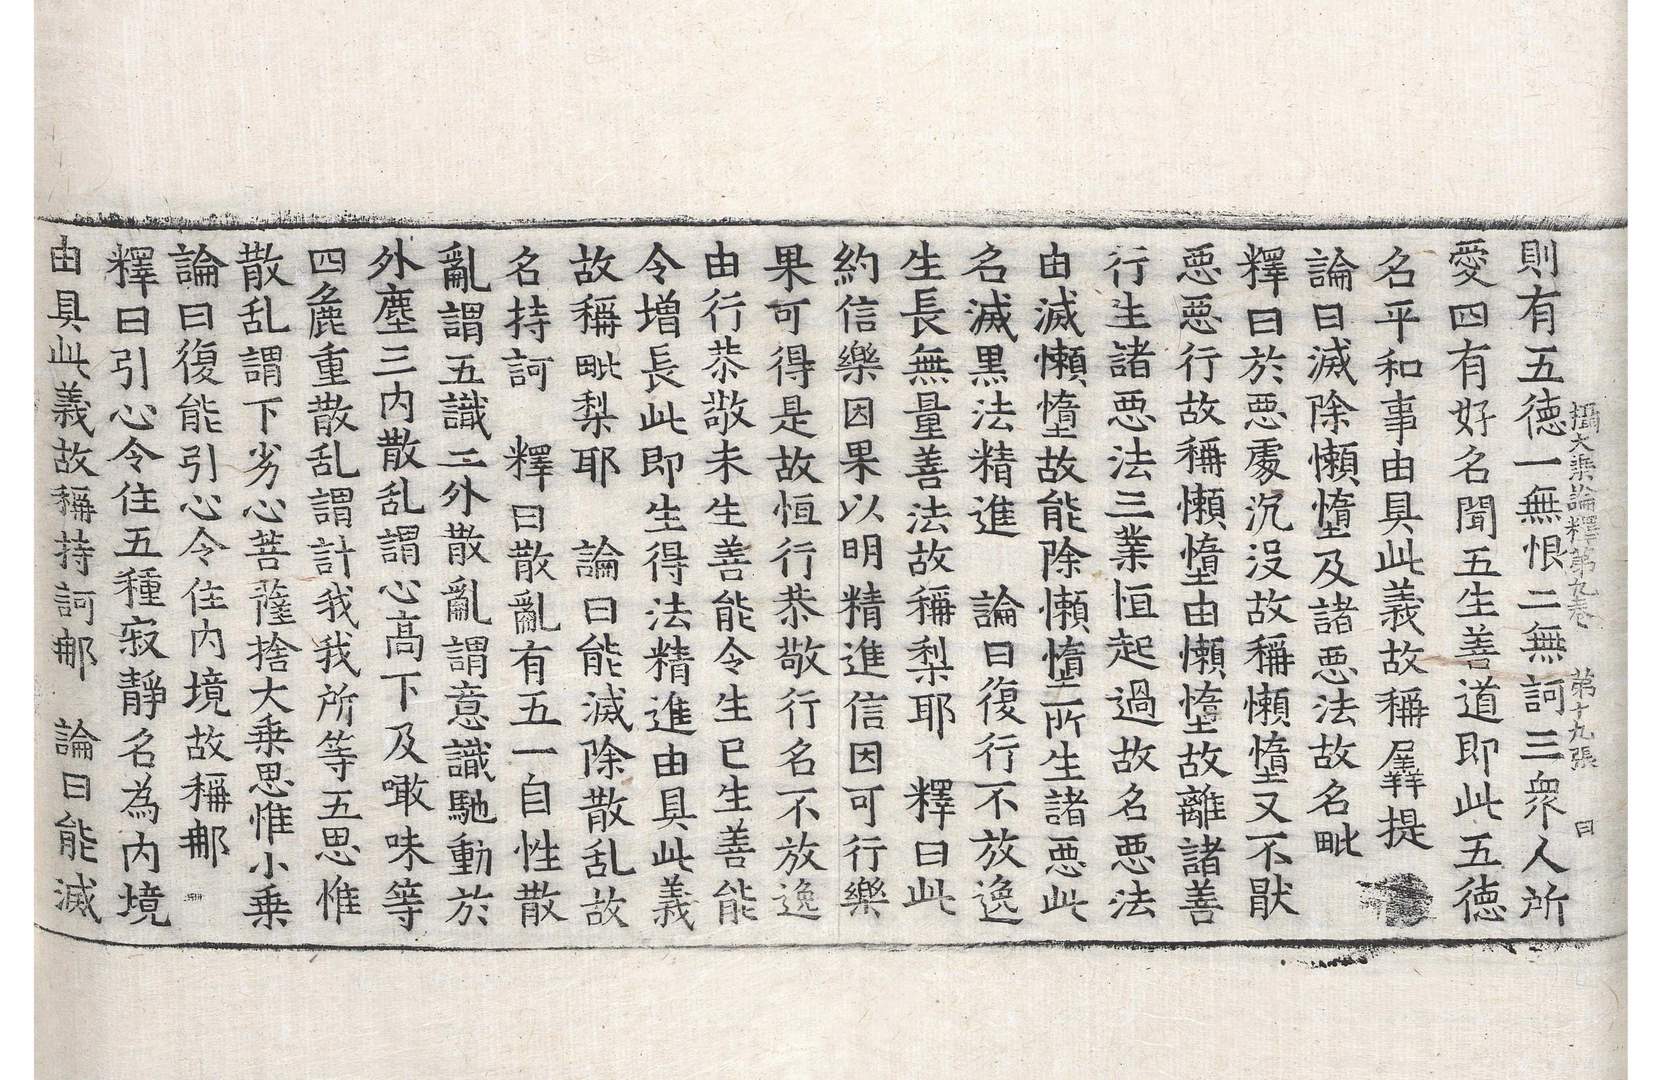 攝大乘論釋第九卷　第十九張　曰
則有五德一無恨二無訶三衆人所
愛四有好名聞五生善道即此五德
名平和事由具此義故稱羼提
論曰滅除懶惰及諸惡法故名毗
釋曰於惡處沉沒故稱懶惰又不猒
惡惡行故稱懶惰由懶惰故離諸善
行生諸惡法三業恒起過故名惡法
由滅懶惰故能除懶惰所生諸惡此
名滅黒法精進　論曰復行不放逸
生長無量善法故稱梨耶　釋曰此
約信樂因果以明精進信因可行樂
果可得是故恒行恭敬行名不放逸
由行恭敬未生善能令生已生善能
令增長此即生得法精進由具此義
故稱毗梨耶　論曰能滅除散乱故
名持訶　釋曰散亂有五一自性散
亂謂五識二外散亂謂意識馳動於
外塵三内散乱謂心高下及噉味等
四麁重散乱謂計我我所等五思惟
散乱謂下劣心菩薩捨大乗思惟小乗
論曰復能引心令住内境故稱㖠
釋曰引心令住五種寂靜名為内境
由具此義故稱持訶㖠　論曰能滅